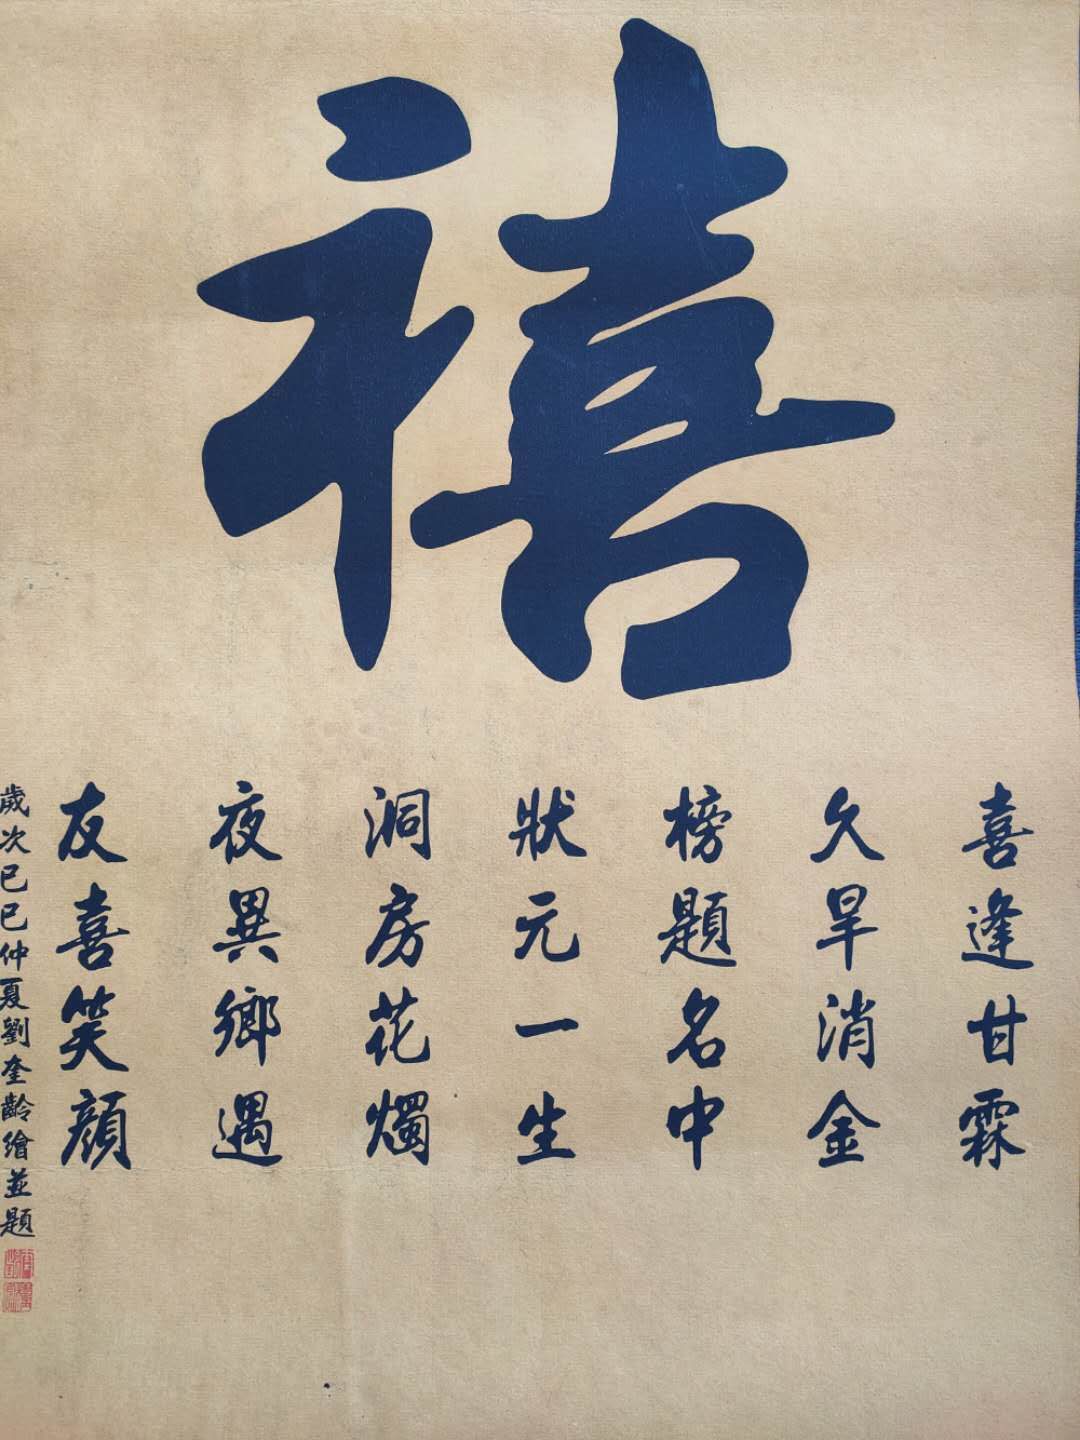 禧
喜逢甘霖
久旱消金
榜題名中
狀元一生
洞房花燭
夜異鄉遇
友喜笑顔
歲次已巳仲夏劉奎齡繪並題